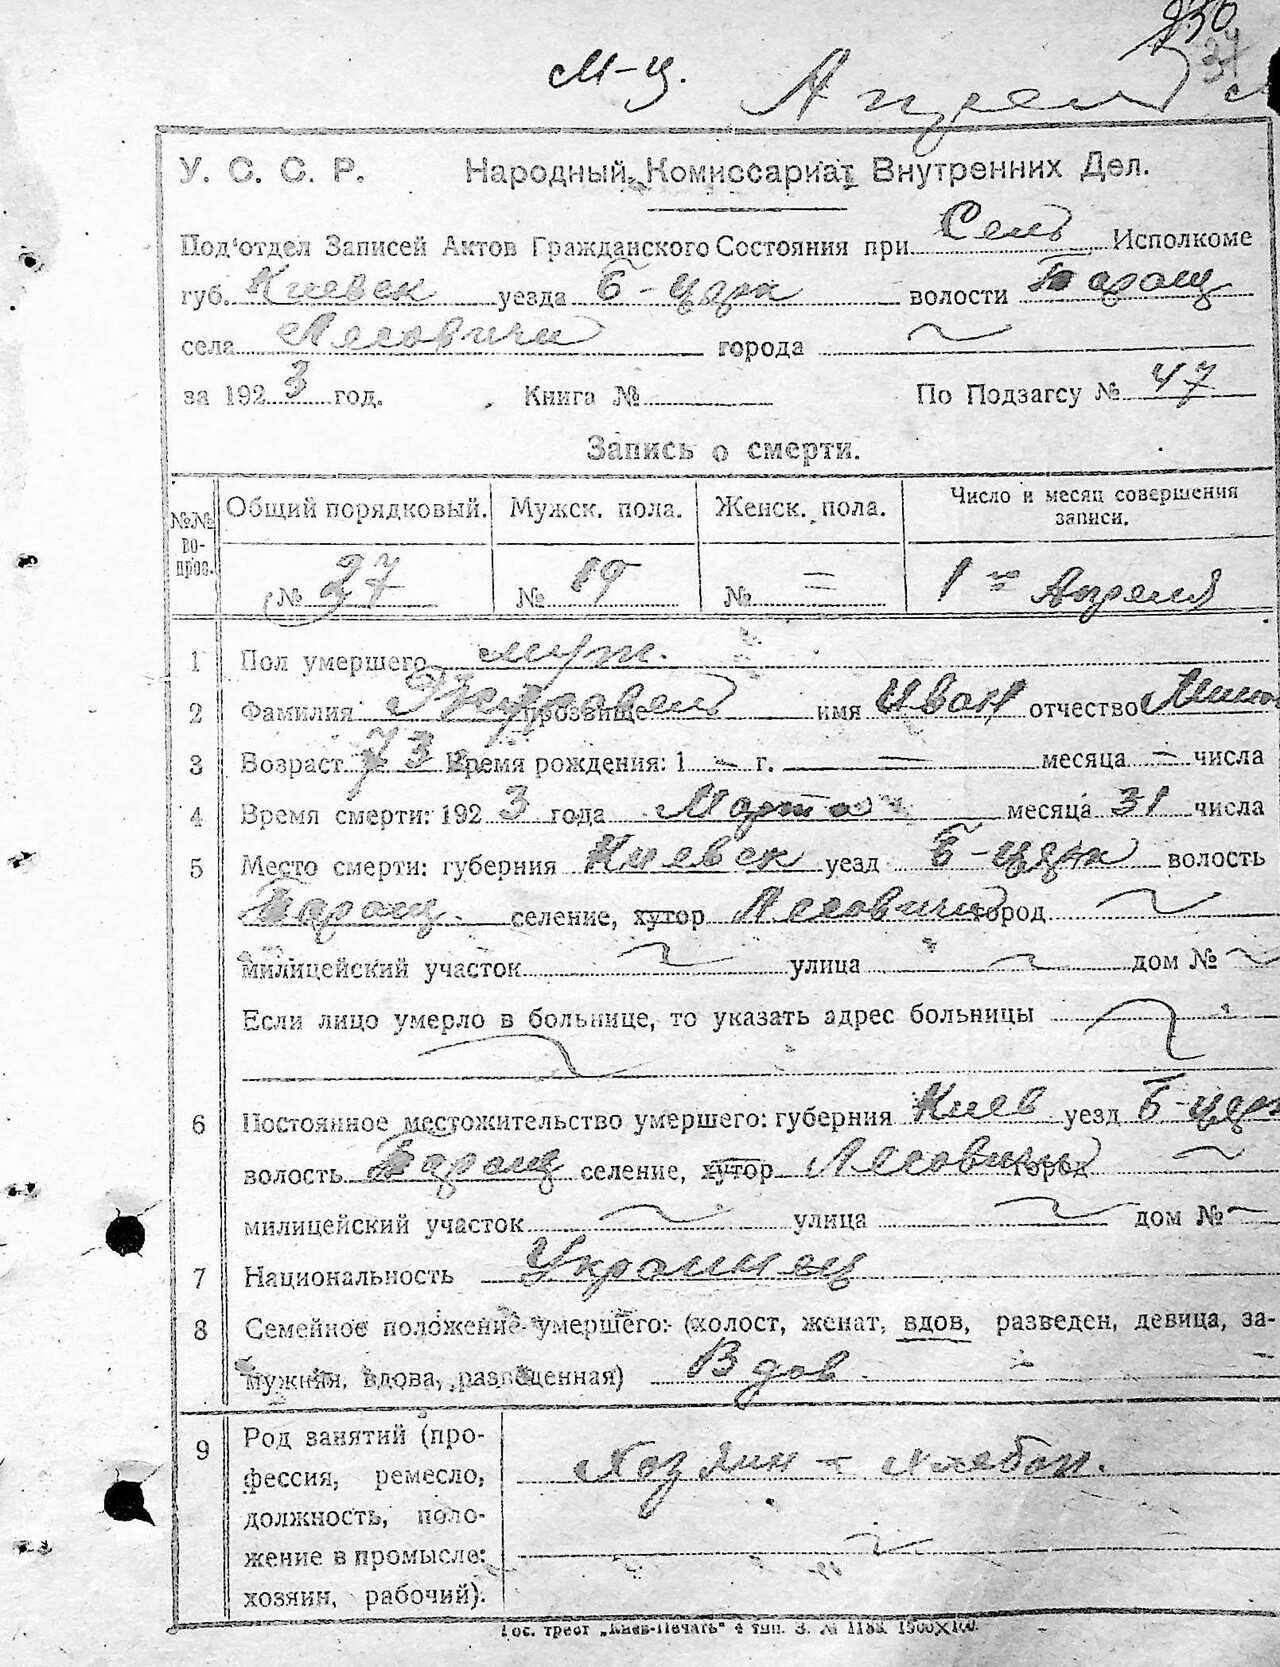 М-ц. Апрель
У. С. С. Р. Народный Комиссариат Внутренних Дел.
Под'отдел Записей Актов Гражданского Состояния при Сель Исполкоме
губ. Киевск уезда Б-церк волости Таращ
села Лесовичи города
за 1923 год. Книга № По Подзагсу № 47
Запись о смерти.
№№ во- прос. Общий порядковый. Мужск. пола. Женск. пола. Число и месяц совершения записи.
№ 27 № 19 № = 1 Апреля
1 Пол умершего муж.
2 Фамилия прозвище имя Иван отчество
3 Возраст 73 Время рождения: 1 – г. – месяца – числа
4 Время смерти: 1923 года Марта месяца 31 числа
5 Место смерти: губерния Киевск уезд Б-церк волость
Таращ. селение, хутор Лесовичи город
милицейский участок улица дом №
Если лицо умерло в больнице, то указать адрес больницы
6 Постоянное местожительство умершего: губерния Киев уезд Б-церк
волость Таращ селение, хутор Лесовичи город
милицейский участок улица дом №
7 Национальность Украинец
8 Семейное положение умершего: (холост, женат, вдов, разведен, девица, за-
мужняя, вдова, разведенная) Вдов.
9 Род занятий (про-
фессия, ремесло, Хозяин - хлебоп.
должность, поло-
жение в промысле:
хозяин, рабочий).
Гос. трест „Киев-Печать“ 4 тип. З. № 1188. 1500×100.